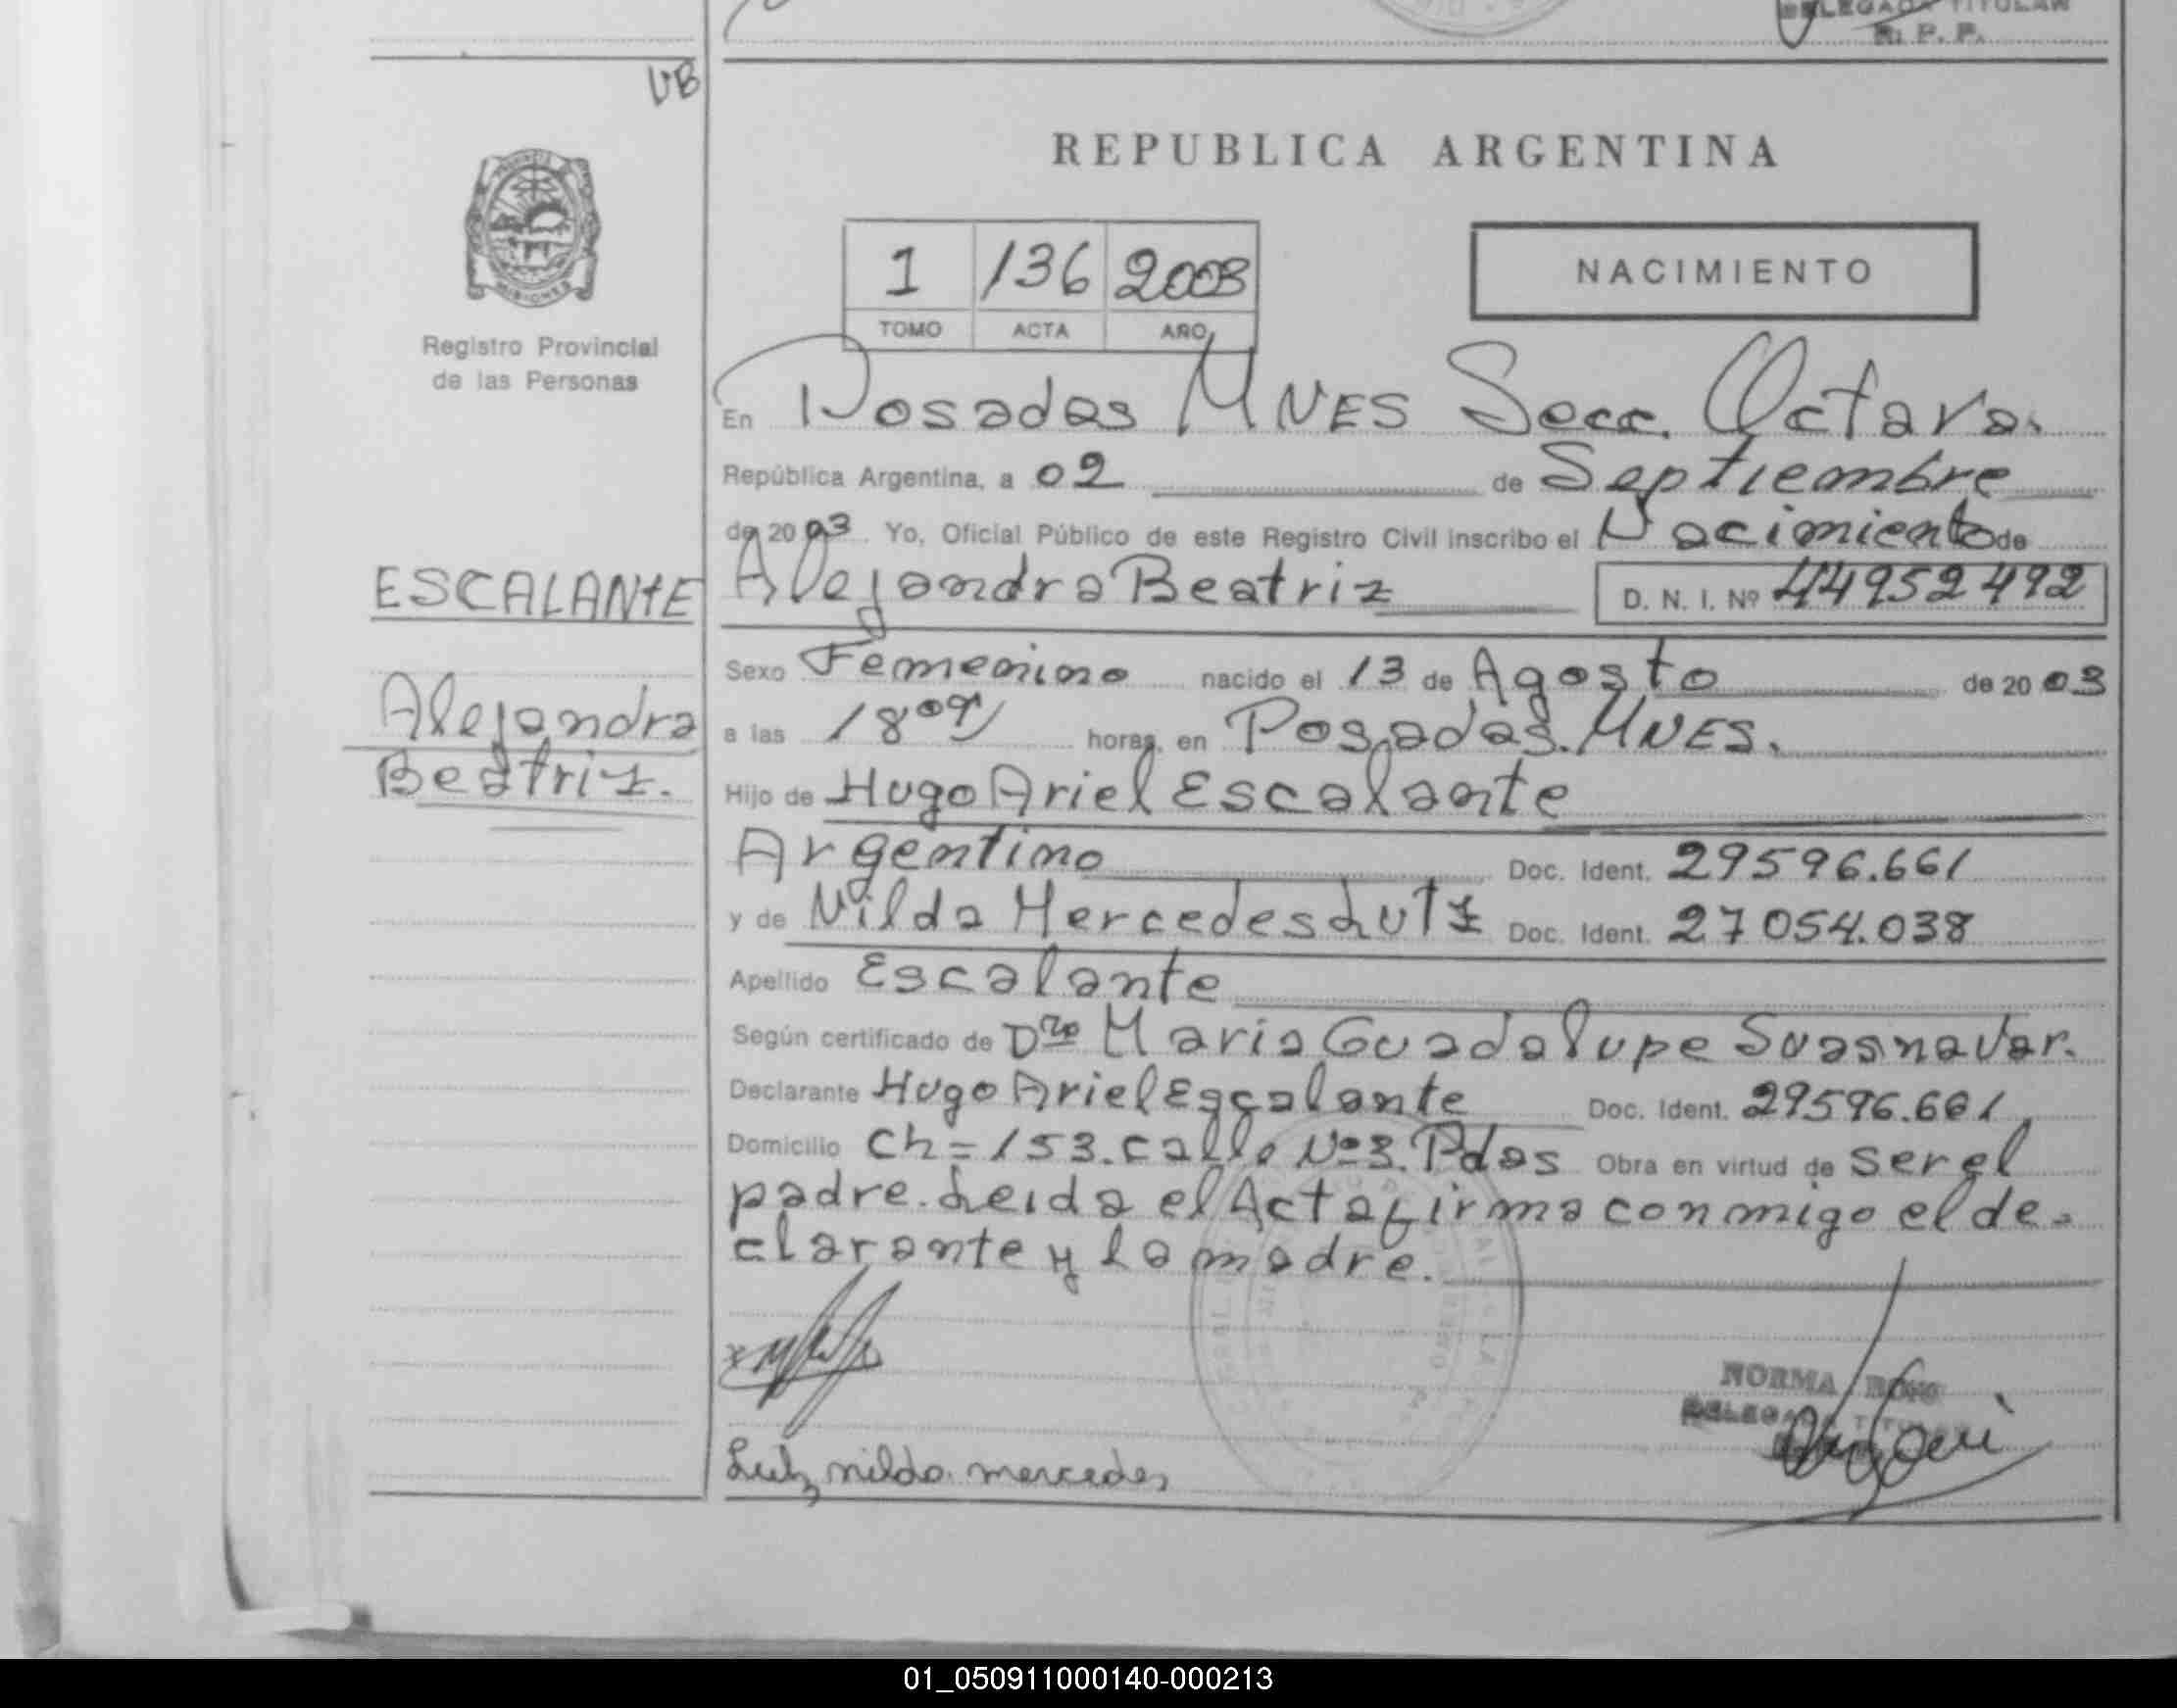 DELEGADA TITULAR
R. P. P.
VB
PROVINCIA
MISIONES
Registro Provincial
de las Personas
ESCALANTE
Alejandra
Beatriz.
REPUBLICA ARGENTINA
1 136 2003
TOMO ACTA AÑO
NACIMIENTO
En Posadas MNES Secc. Octava.
República Argentina, a 02 de Septiembre
de 2003. Yo, Oficial Público de este Registro Civil inscribo el Nacimiento de
Alejandra Beatriz D. N. I. Nº 44952492
Sexo Femenino nacido el 13 de Agosto de 2003
a las 18 09 horas, en Posadas. MNES.
Hijo de Hugo Ariel Escalante
Argentino Doc. Ident. 29596.661
y de Nilda Mercedes Lutz Doc. Ident. 27054.038
Apellido Escalante
Según certificado de Dra Maria Guadalupe Suasnavar.
Declarante Hugo Ariel Escalante Doc. Ident. 29596.661
Domicilio Ch=153.calle Nº3.Pdas Obra en virtud de ser el
padre. Leida el Acta firma conmigo el de-
clarante y la madre.
NORMA
DELEGADA TITULAR
Lutz nilda mercedes
01_050911000140-000213